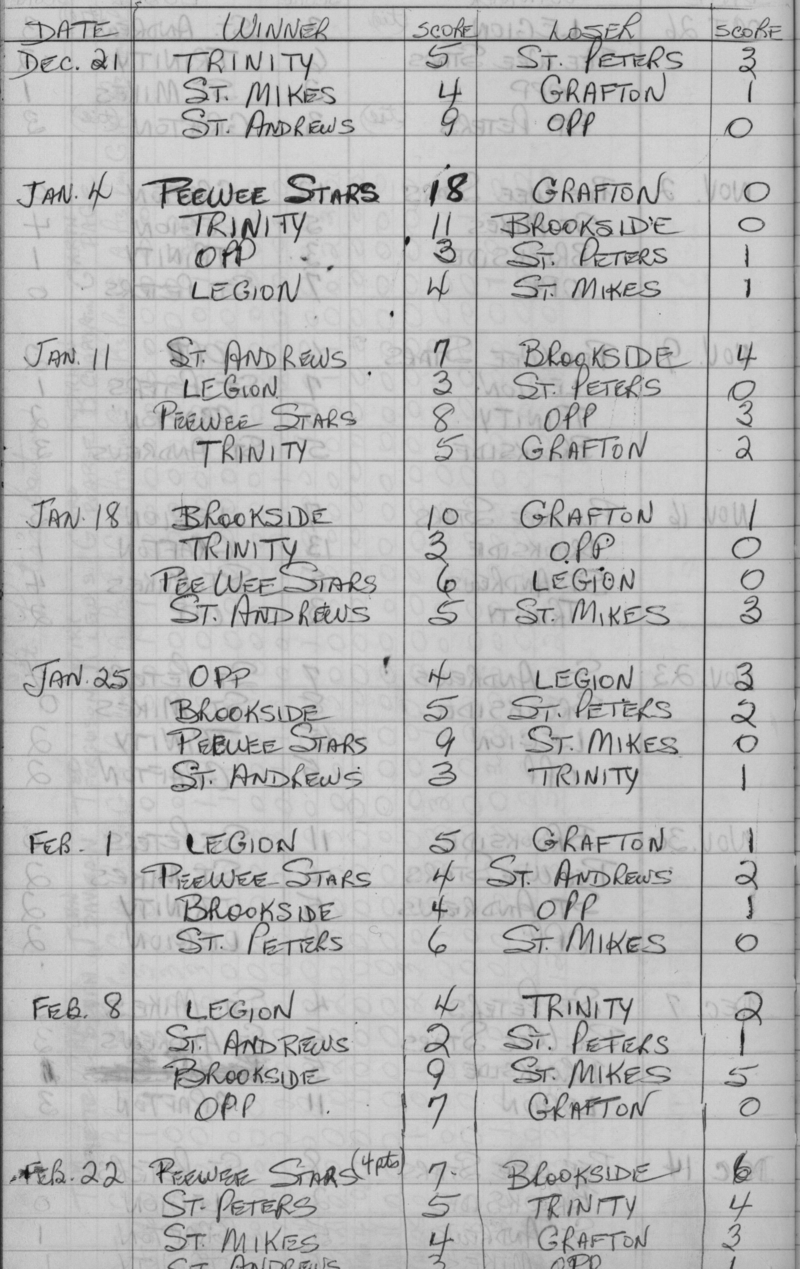 DATE WINNER SCORE LOSER SCORE
DEC. 21 TRINITY 5 ST. PETERS 3
ST. MIKES 4 GRAFTON 1
ST. ANDREWS 9 OPP 0
JAN. 4 PEEWEE STARS 18 GRAFTON 0
TRINITY 11 BROOKSIDE 0
OPP 3 ST. PETERS 1
LEGION 4 ST. MIKES 1
JAN. 11 ST. ANDREWS 7 BROOKSIDE 4
LEGION 3 ST. PETERS 0
PEEWEE STARS 8 OPP 3
TRINITY 5 GRAFTON 2
JAN. 18 BROOKSIDE 10 GRAFTON 1
TRINITY 3 OPP 0
PEEWEE STARS 6 LEGION 0
ST. ANDREWS 5 ST. MIKES 3
JAN. 25 OPP 4 LEGION 3
BROOKSIDE 5 ST. PETERS 2
PEEWEE STARS 9 ST. MIKES 0
ST. ANDREWS 3 TRINITY 1
FEB. 1 LEGION 5 GRAFTON 1
PEEWEE STARS 4 ST. ANDREWS 2
BROOKSIDE 4 OPP 1
ST. PETERS 6 ST. MIKES 0
FEB. 8 LEGION 4 TRINITY 2
ST. ANDREWS 2 ST. PETERS 1
BROOKSIDE 9 ST. MIKES 5
OPP 7 GRAFTON 0
FEB. 22 PEEWEE STARS (4 pts) 7 BROOKSIDE 6
ST. PETERS 5 TRINITY 4
ST. MIKES 4 GRAFTON 3
ST. ANDREWS 3 OPP 1